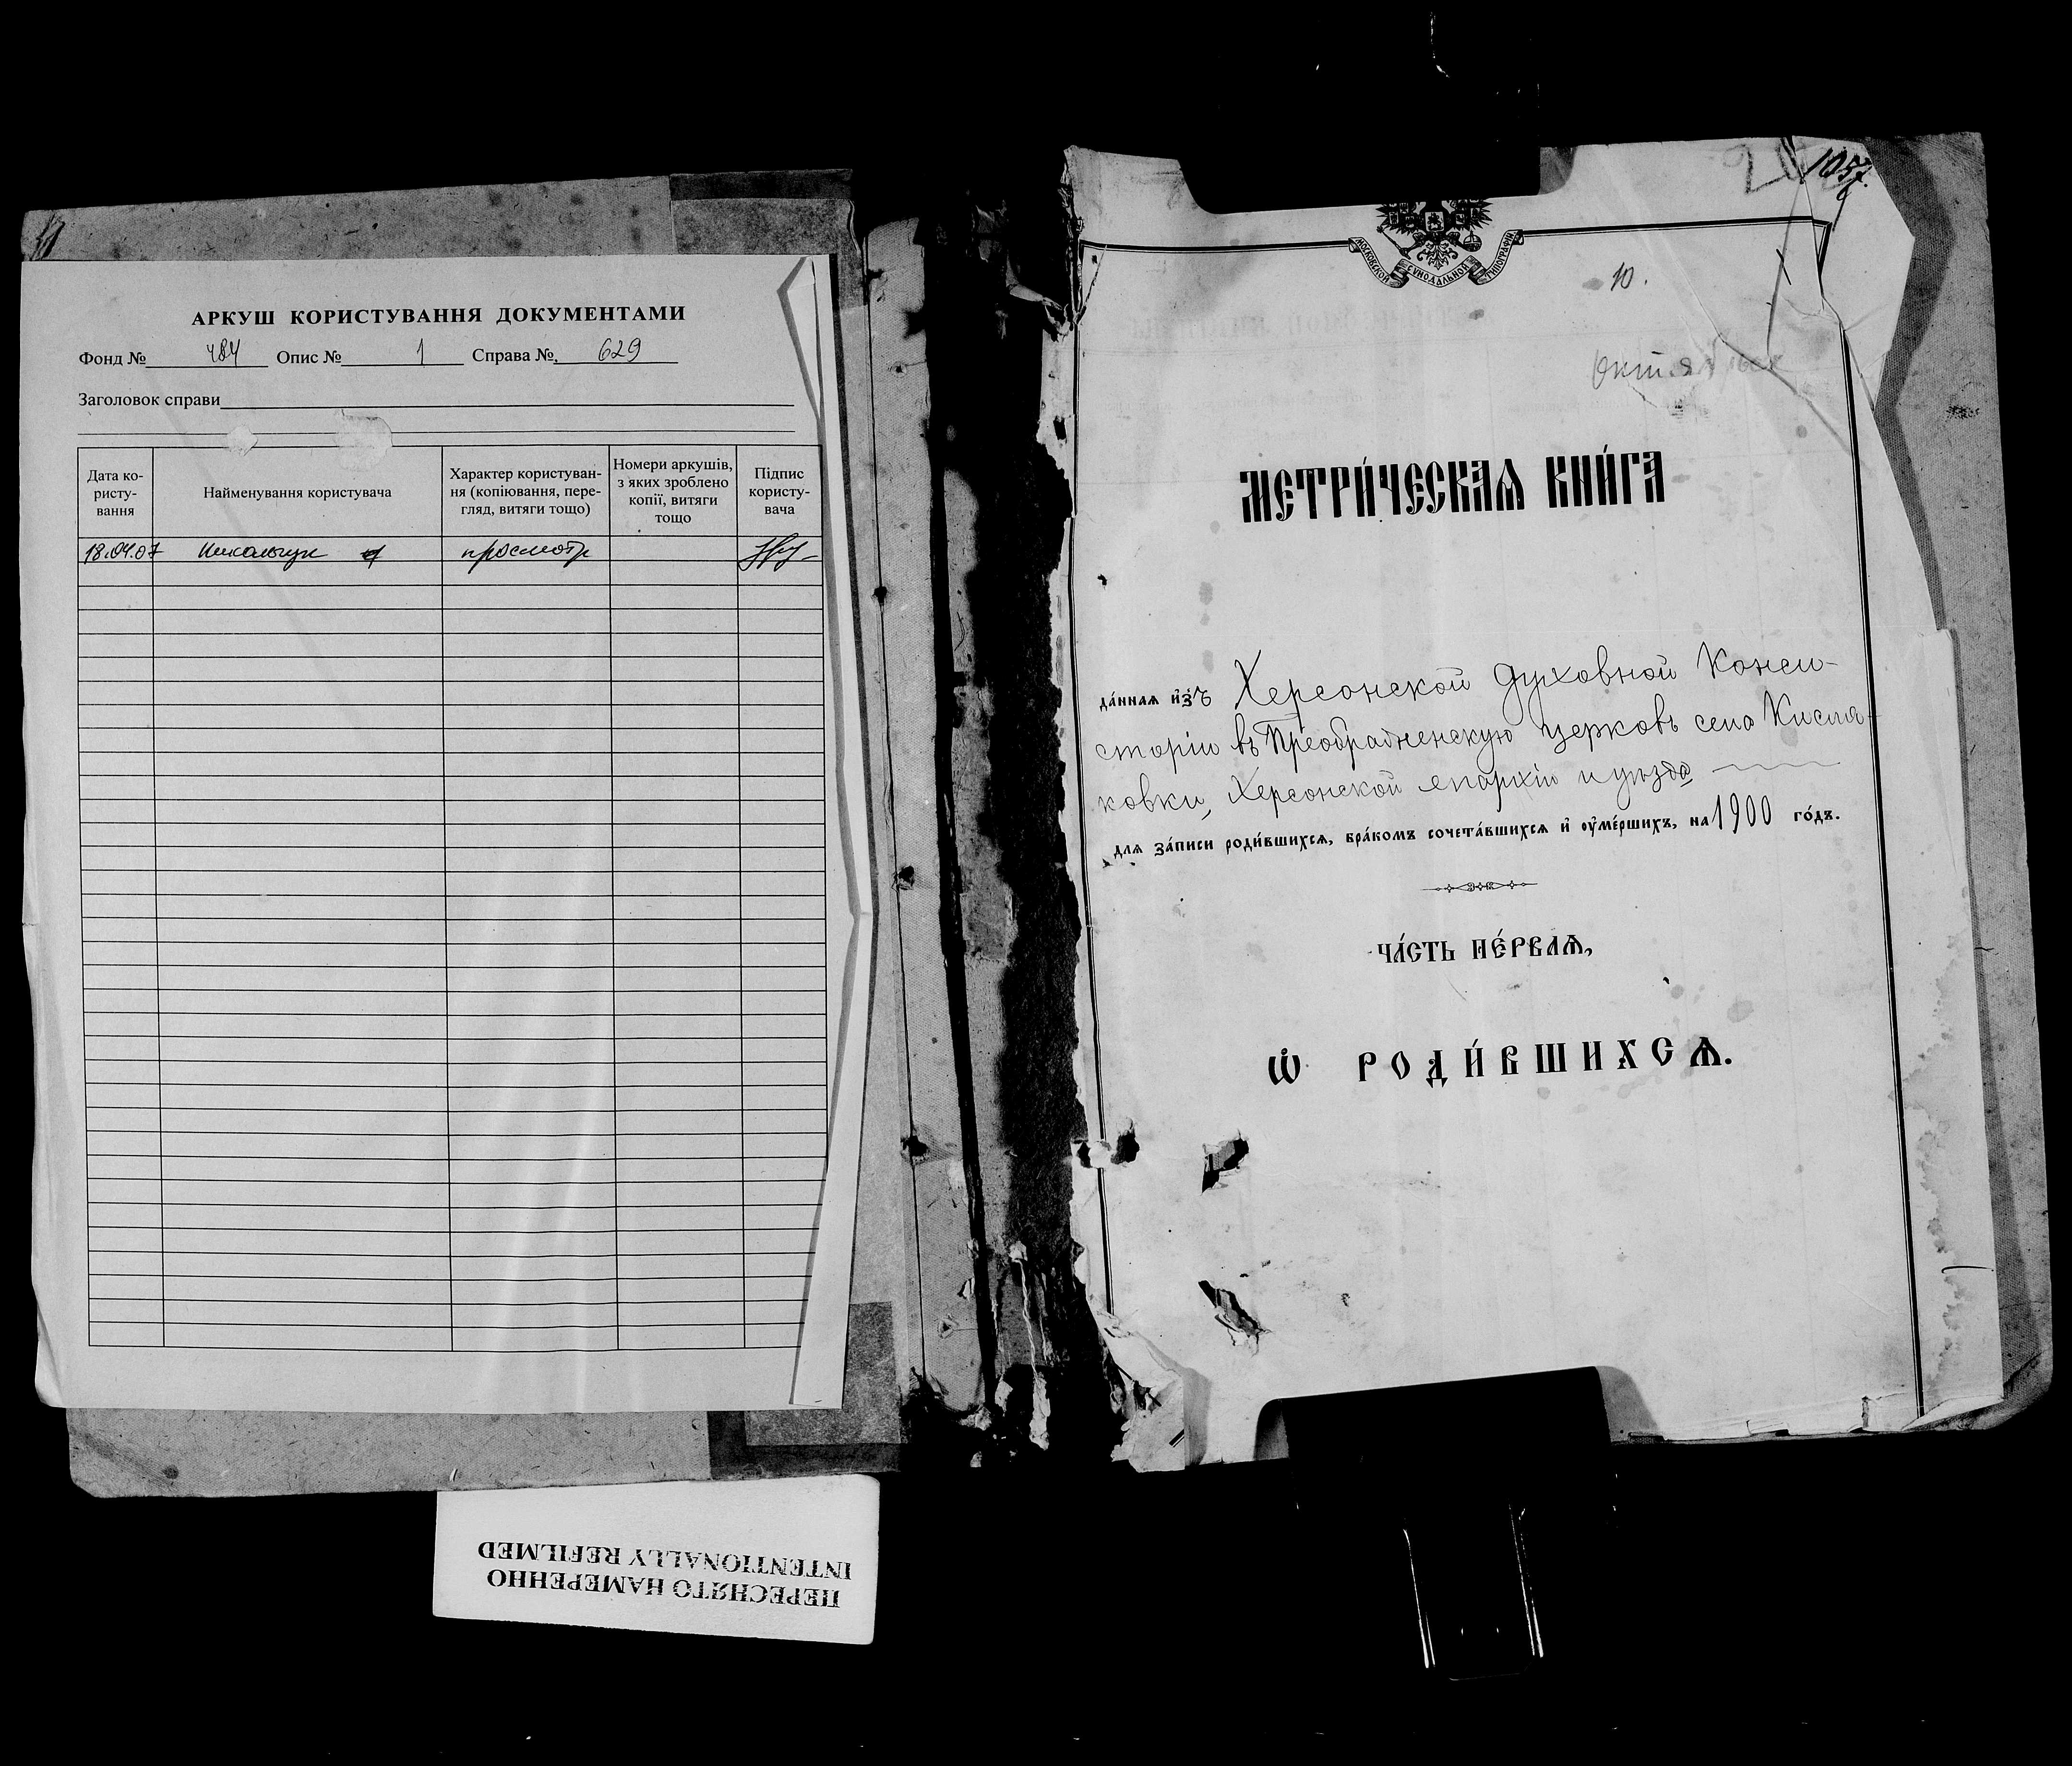 АРКУШ КОРИСТУВАННЯ ДОКУМЕНТАМИ
Фонд № 484 Опис № 1 Справа № 629
Заголовок справи
Дата ко-
ристу-
вання
Найменування користувача
Характер користуван-
ня (копіювання, пере-
гляд, витяги тощо)
Номери аркушів,
з яких зроблено
копії, витяги
тощо
Підпис
користу-
вача
18.04.07 просмотр
ПЕРЕСНЯТО НАМЕРЕННО
INTENTIONALLY REFILMED
1057.
МОСКОВСКОЙ СУНОДАЛЬНОЙ ТИПОГРАФІИ
10.
МЕТРИ́ЧЕСКАѦ КНИ́ГА
да́ннаѧ и҆зъ Херсонской Духовной Конси-
сторіи въ Преображенскую церковь села Кисля-
ковки, Херсонской епархіи и уѣзда
для за́писи роди́вшихсѧ, бра́комъ сочета́вшихсѧ и҆ оу҆ме́ршихъ, на 1900 го́дъ.
ЧА́СТЬ ПЕ́РВАѦ,
Ѡ҆ РОДИ́ВШИХСѦ.